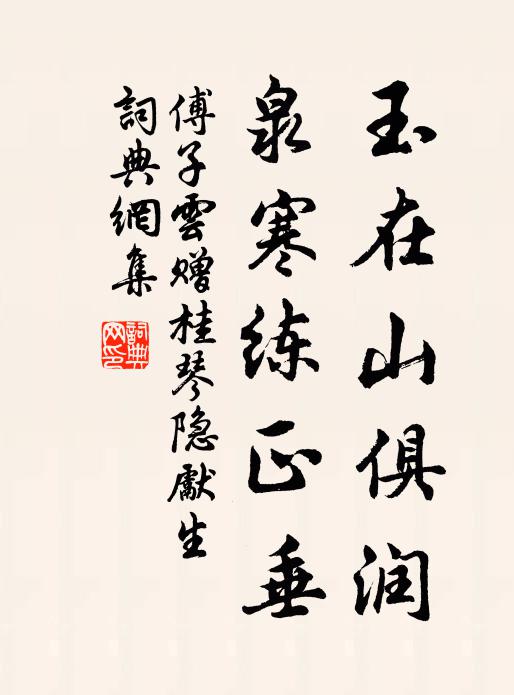 玉在山俱润
泉寒练正垂
傅子雲赠桂琴隐獻生
詞典網集
詞典网印